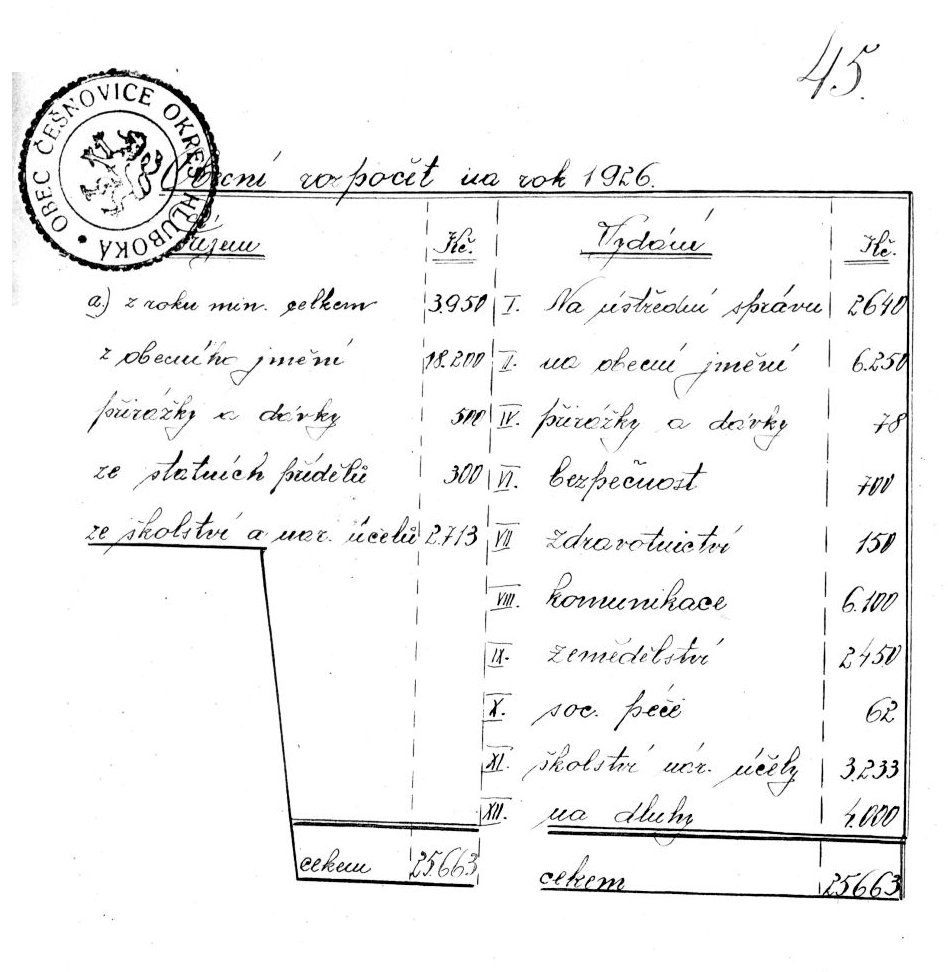 45.
OBEC ČEŠNOVICE OKRES HLUBOKÁ
Obecní rozpočet na rok 1926.
Příjem Kč. Vydání Kč.
a.) z roku min. celkem 3.950 I. Na ústřední správu 2640
z obecního jmění 18.200 II. na obecní jmění 6.250
přirážky a dávky 500 IV. přirážky a dávky 78
ze statních přídělů 300 VI. bezpečnost 700
ze školství a nar. účelů 2.713 VII zdravotnictví 150
VIII. komunikace 6.100
IX. zemědělství 2450
X. soc. péče 62
XI. školství nár. účely 3.233
XII. na dluhy 4.000
cekem 25.663 cekem 25663